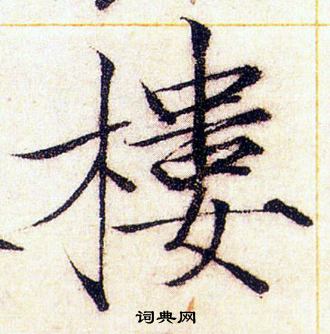 樓
词典网